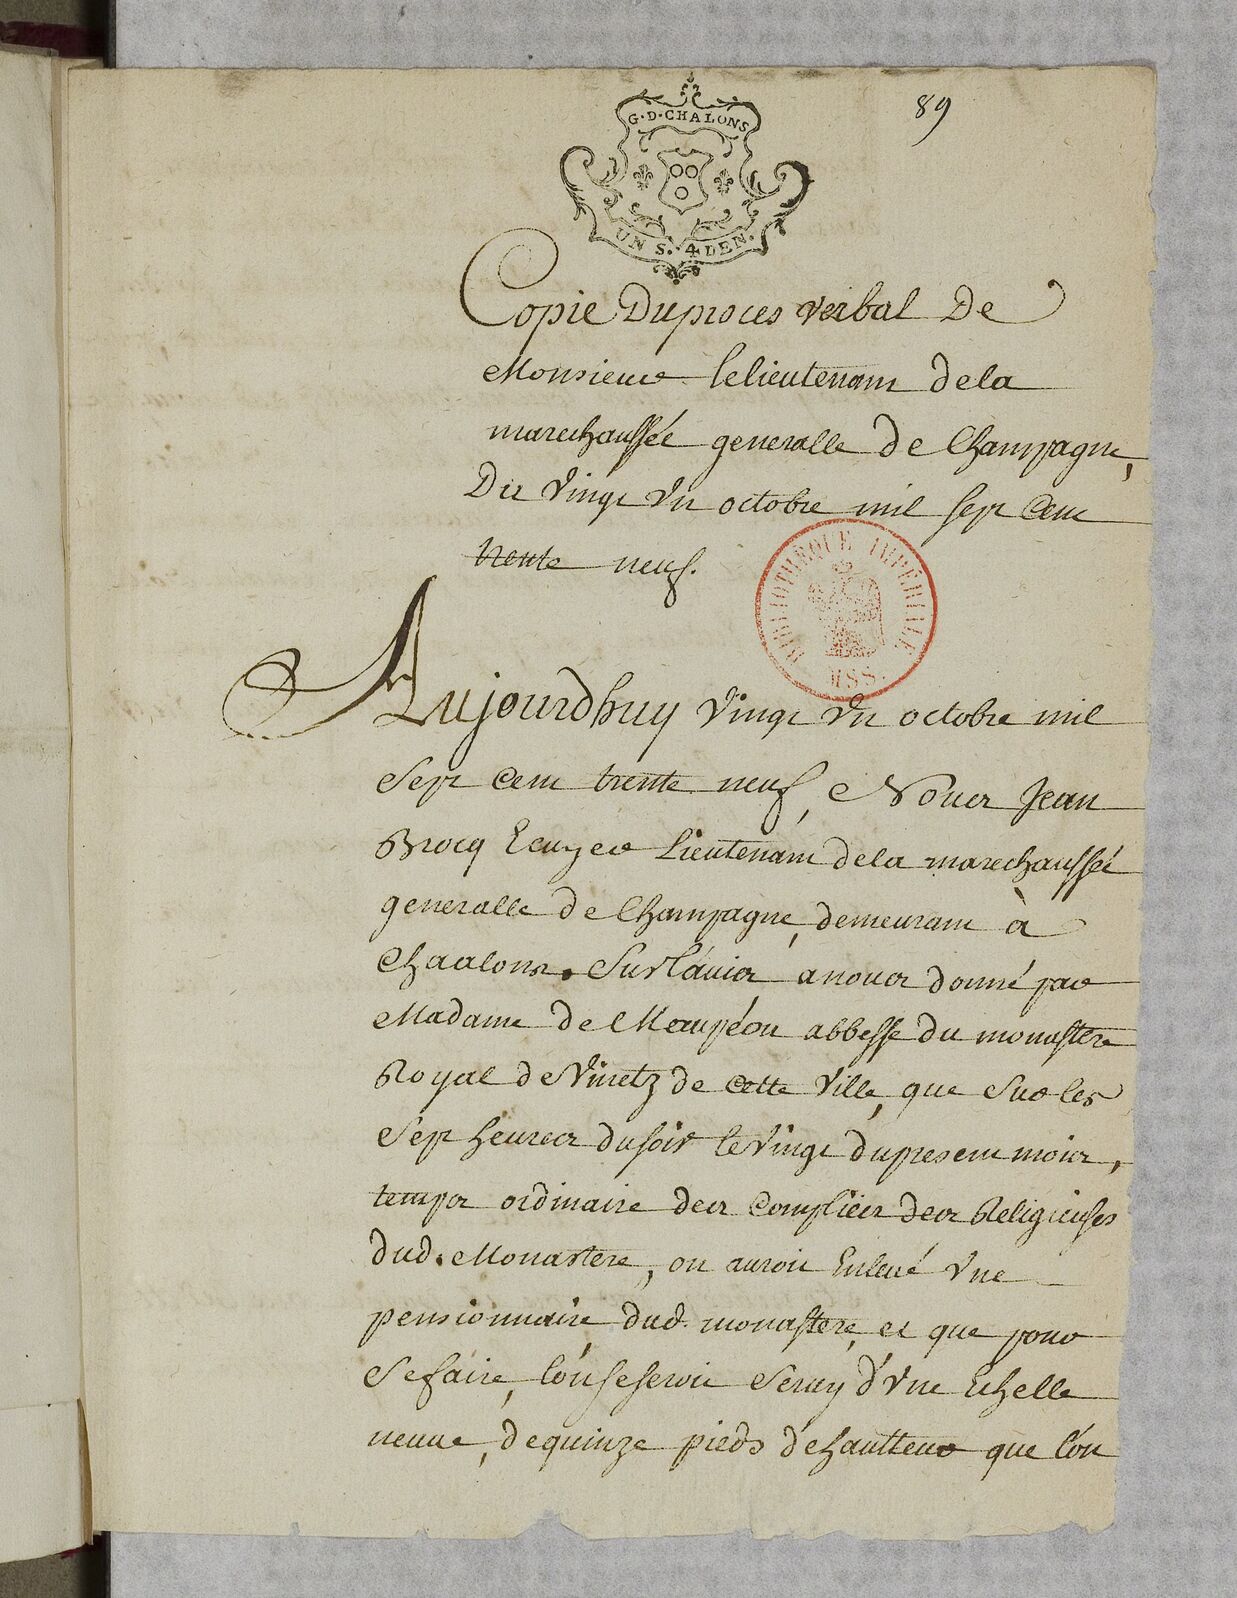 89
G·D·CHALONS
UN S. 4 DEN.
Copie Du proces verbal De
Monsieur le lieutenant de la
marechaussée generalle de Champagne,
Du Vingt Un octobre mil sept Cent
trente neuf.
BIBLIOTHÈQUE IMPÉRIALE
MSS.
Aujourdhuy Vingt Un octobre mil
Sept Cent trente neuf, Nous Jean
Brocq Ecuyer Lieutenant de la marechaussée
generalle de Champagne, demeurant à
Chaalons. Sur l'auis a nous donné par
Madame de Maupéou abbesse du monastere
Royal de Vinetz de cette Ville, que Sur les
Sept heures du soir le Vingt du present mois,
temps ordinaire des Complies des Religieuses
dud. Monastere, on auroit Enleué Une
pensionnaire dud. monastere, et que pour
Se faire, l'on se seroit Seruy d'Une Echelle
neuue, de quinze pieds de hautteur que l'on